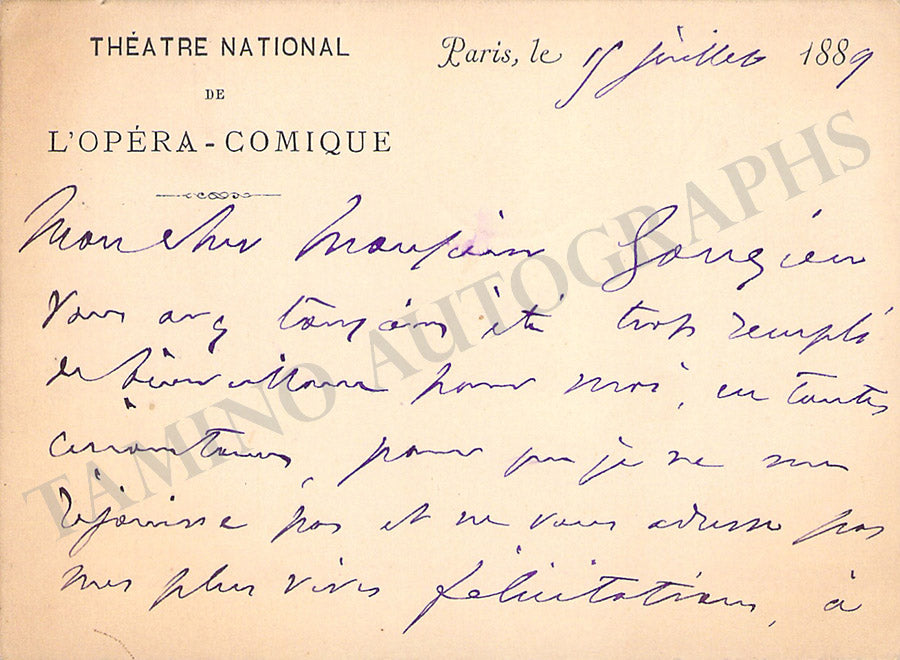 THÉATRE NATIONAL
DE
L'OPÉRA-COMIQUE
Paris, le 15 juillet 1889
Mon cher Monsieur Gouzien
Vous avez toujours été trop rempli
de bienveillance pour moi, en toutes
circonstances, pour que je ne me
réjouisse pas et ne vous adresse pas
mes plus vives félicitations, à
TAMINO AUTOGRAPHS